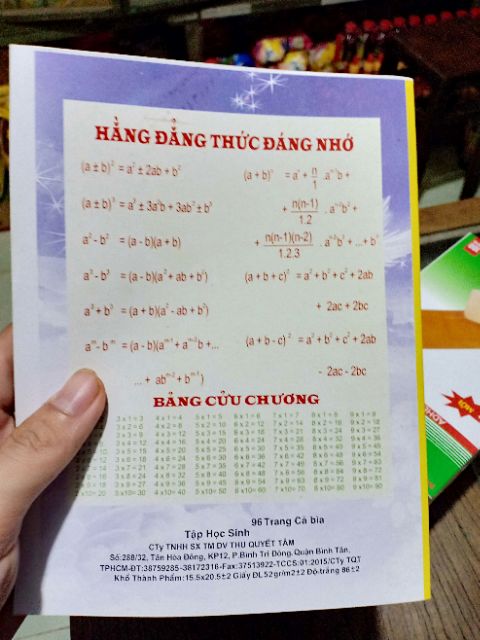 HẰNG ĐẲNG THỨC ĐÁNG NHỚ
(a ± b)² = a² ± 2ab + b²
(a ± b)³ = a³ ± 3a²b + 3ab² ± b³
a² - b² = (a - b)(a + b)
a³ - b³ = (a - b)(a² + ab + b²)
a³ + b³ = (a + b)(a² - ab + b²)
aᵐ - bᵐ = (a - b)(aᵐ⁻¹ + aᵐ⁻²b +...
... + abᵐ⁻² + bᵐ⁻¹)
(a + b)ⁿ = aⁿ + n/1 .aⁿ⁻¹b +
+ n(n-1)/1.2 . aⁿ⁻²b² +
+ n(n-1)(n-2)/1.2.3 .aⁿ⁻³b³ + ... + bⁿ
(a + b + c)² = a² + b² + c² + 2ab
+ 2ac + 2bc
(a + b - c)² = a² + b² + c² + 2ab
- 2ac - 2bc
BẢNG CỬU CHƯƠNG
3 x 1 = 3 4 x 1 = 4 5 x 1 = 5 6 x 1 = 6 7 x 1 = 7 8 x 1 = 8 9 x 1 = 9
3 x 2 = 6 4 x 2 = 8 5 x 2 = 10 6 x 2 = 12 7 x 2 = 14 8 x 2 = 16 9 x 2 = 18
3 x 3 = 9 4 x 3 = 12 5 x 3 = 15 6 x 3 = 18 7 x 3 = 21 8 x 3 = 24 9 x 3 = 27
3 x 4 = 12 4 x 4 = 16 5 x 4 = 20 6 x 4 = 24 7 x 4 = 28 8 x 4 = 32 9 x 4 = 36
3 x 5 = 15 4 x 5 = 20 5 x 5 = 25 6 x 5 = 30 7 x 5 = 35 8 x 5 = 40 9 x 5 = 45
3 x 6 = 18 4 x 6 = 24 5 x 6 = 30 6 x 6 = 36 7 x 6 = 42 8 x 6 = 48 9 x 6 = 54
3 x 7 = 21 4 x 7 = 28 5 x 7 = 35 6 x 7 = 42 7 x 7 = 49 8 x 7 = 56 9 x 7 = 63
3 x 8 = 24 4 x 8 = 32 5 x 8 = 40 6 x 8 = 48 7 x 8 = 56 8 x 8 = 64 9 x 8 = 72
3 x 9 = 27 4 x 9 = 36 5 x 9 = 45 6 x 9 = 54 7 x 9 = 63 8 x 9 = 72 9 x 9 = 81
3 x 10= 30 4 x 10= 40 5 x 10= 50 6 x 10= 60 7 x 10= 70 8 x 10= 80 9 x 10= 90
96 Trang Cả bìa
Tập Học Sinh
CTy TNHH SX TM DV THU QUYẾT TÂM
Số:288/32, Tân Hòa Đông, KP12, P.Bình Trị Đông.Quận Bình Tân,
TPHCM-ĐT:38759285-38172316-Fax:37513922-TCCS:01:2015/CTy TQT
Khổ Thành Phẩm:15.5x20.5±2 Giấy ĐL 52gr/m2±2 Độ trắng 86±2